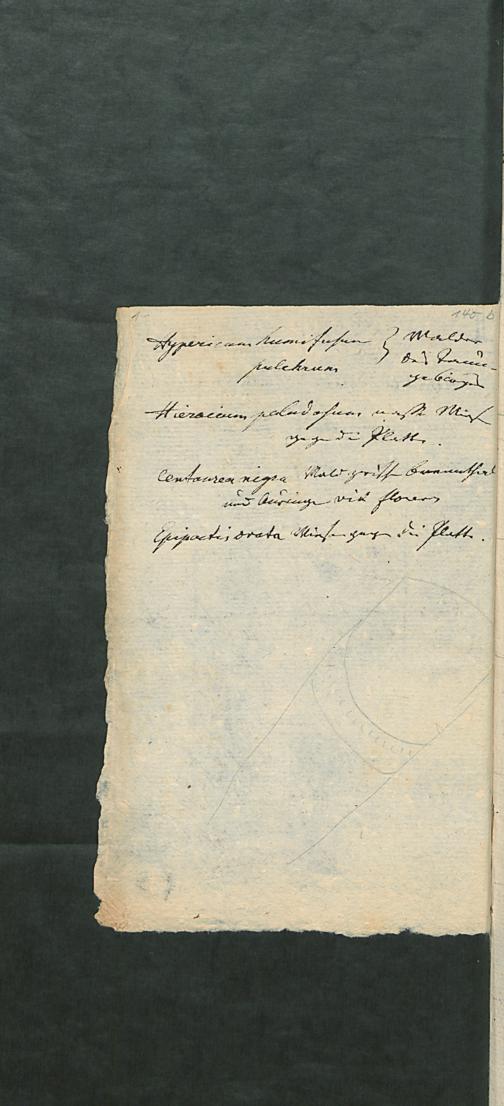 1
140 b
Hypericum humifusum } Wälder
pulchrum des Taun-
gebirges
Hieracium paludosum nasse Wiese
gegen die Platte.
Centaurea nigra Wald zwischen
und flores
Epipactis ovata Wiesen gegen die Platte.